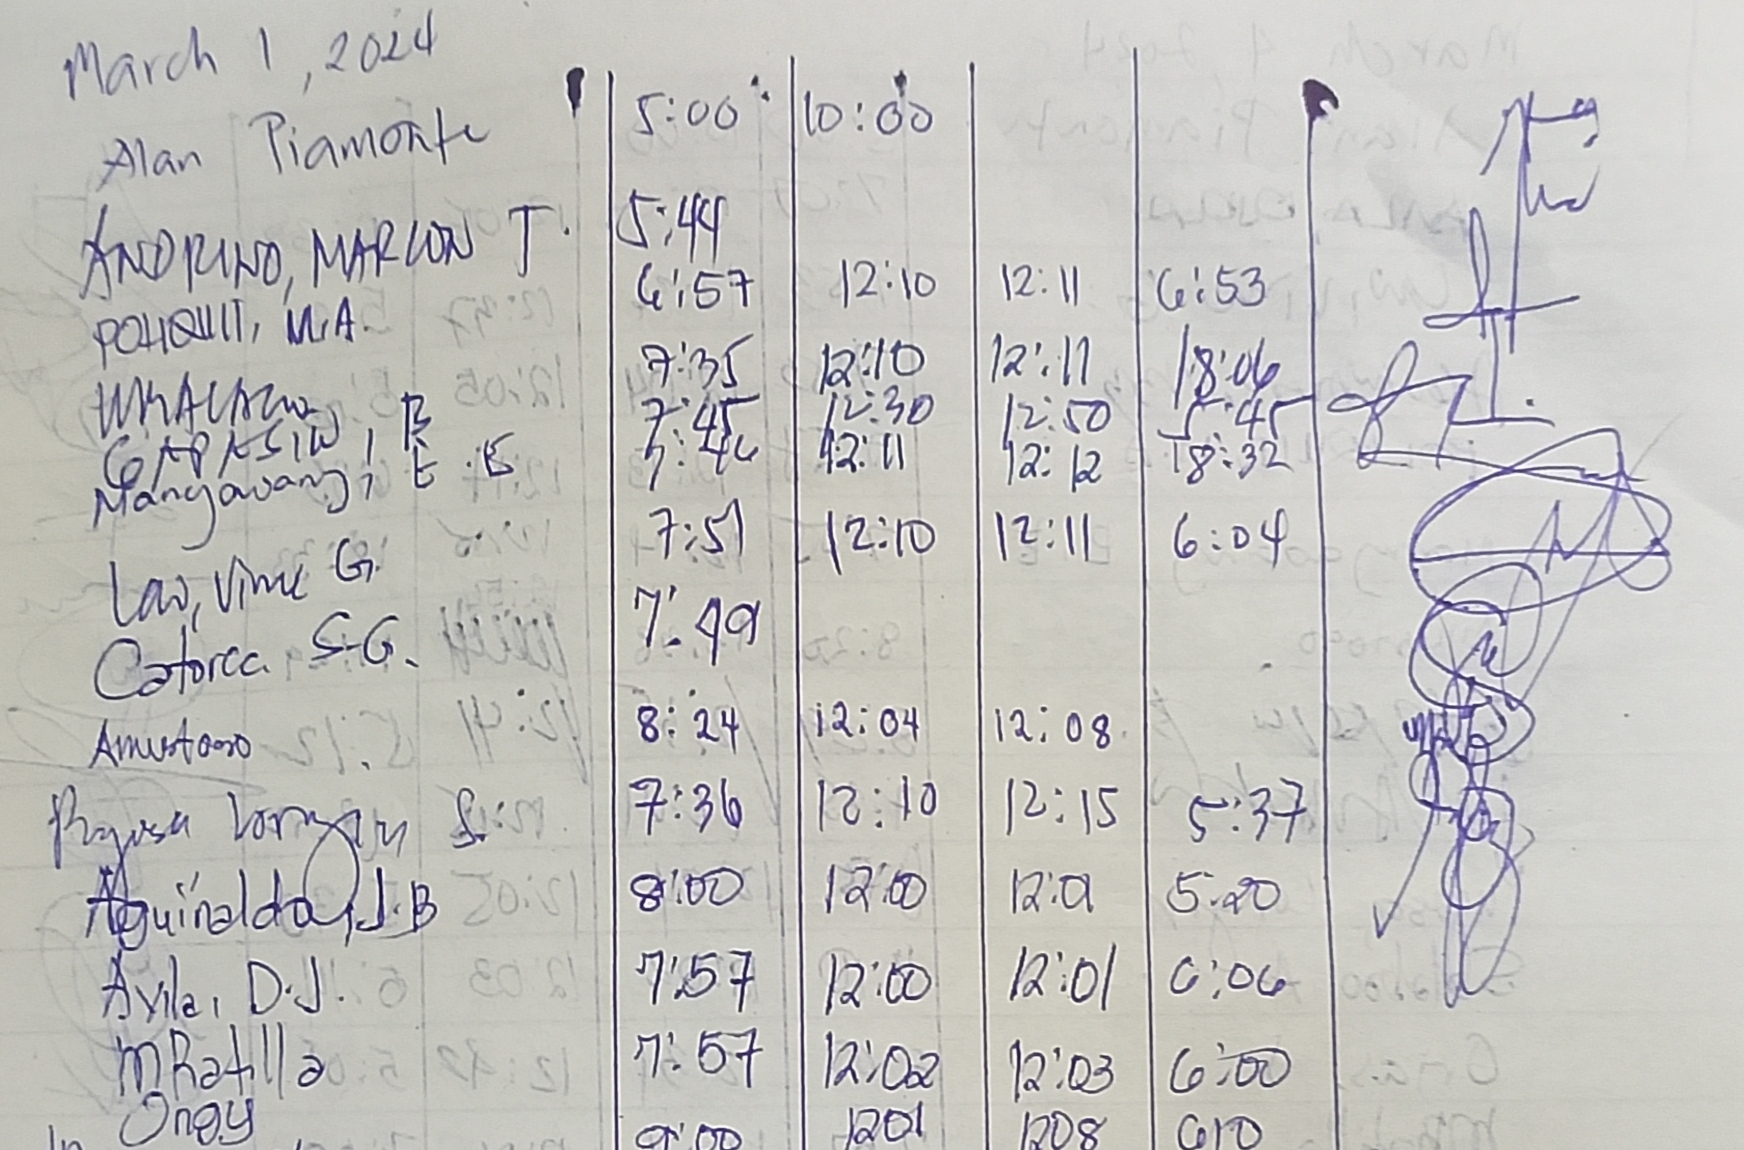 March 1, 2024
Alan Piamonte 5:00 10:00
ANDRINO, MARLON T. 5:44
POHQUIT, M.A. 6:57 12:10 12:11 6:53
7:35 12:10 12:11 18:06
GAPASIN, B 7:45 12:30 12:50 5:45
Mangawang, E.E 7:46 12:11 12:12 18:32
Lao, Vime G. 7:51 12:10 12:11 6:04
Catorce S.G. 7:49
8:24 12:04 12:08
7:36 12:10 12:15 5:37
Aguinaldo, J.B 8:00 12:00 12:01 5:20
Avila, D.J. 7:57 12:00 12:01 6:06
MRatilla 7:57 12:02 12:03 6:00
Ongy 9:00 1201 1208 610